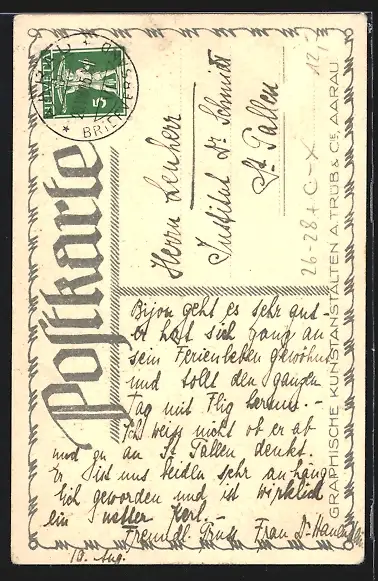 Postkarte
HELVETIA
5
Herrn Leuherr
Institut Dr. Schmidt
St. Gallen
Bijou geht es sehr gut -
er hat sich ganz an
sein Ferienleben gewöhnt
und tollt den ganzen
Tag mit Flig herum. -
Ich weiss nicht ob er ab
und zu an St Gallen denkt.
Er ist uns beiden sehr anhäng
lich geworden und ist wirklich
ein netter Kerl. -
Freundl. Gruss Frau Dr.
10. Aug.
26-28 + C-X
12,-
GRAPHISCHE KUNSTANSTALTEN A. TRÜB & Cie, AARAU